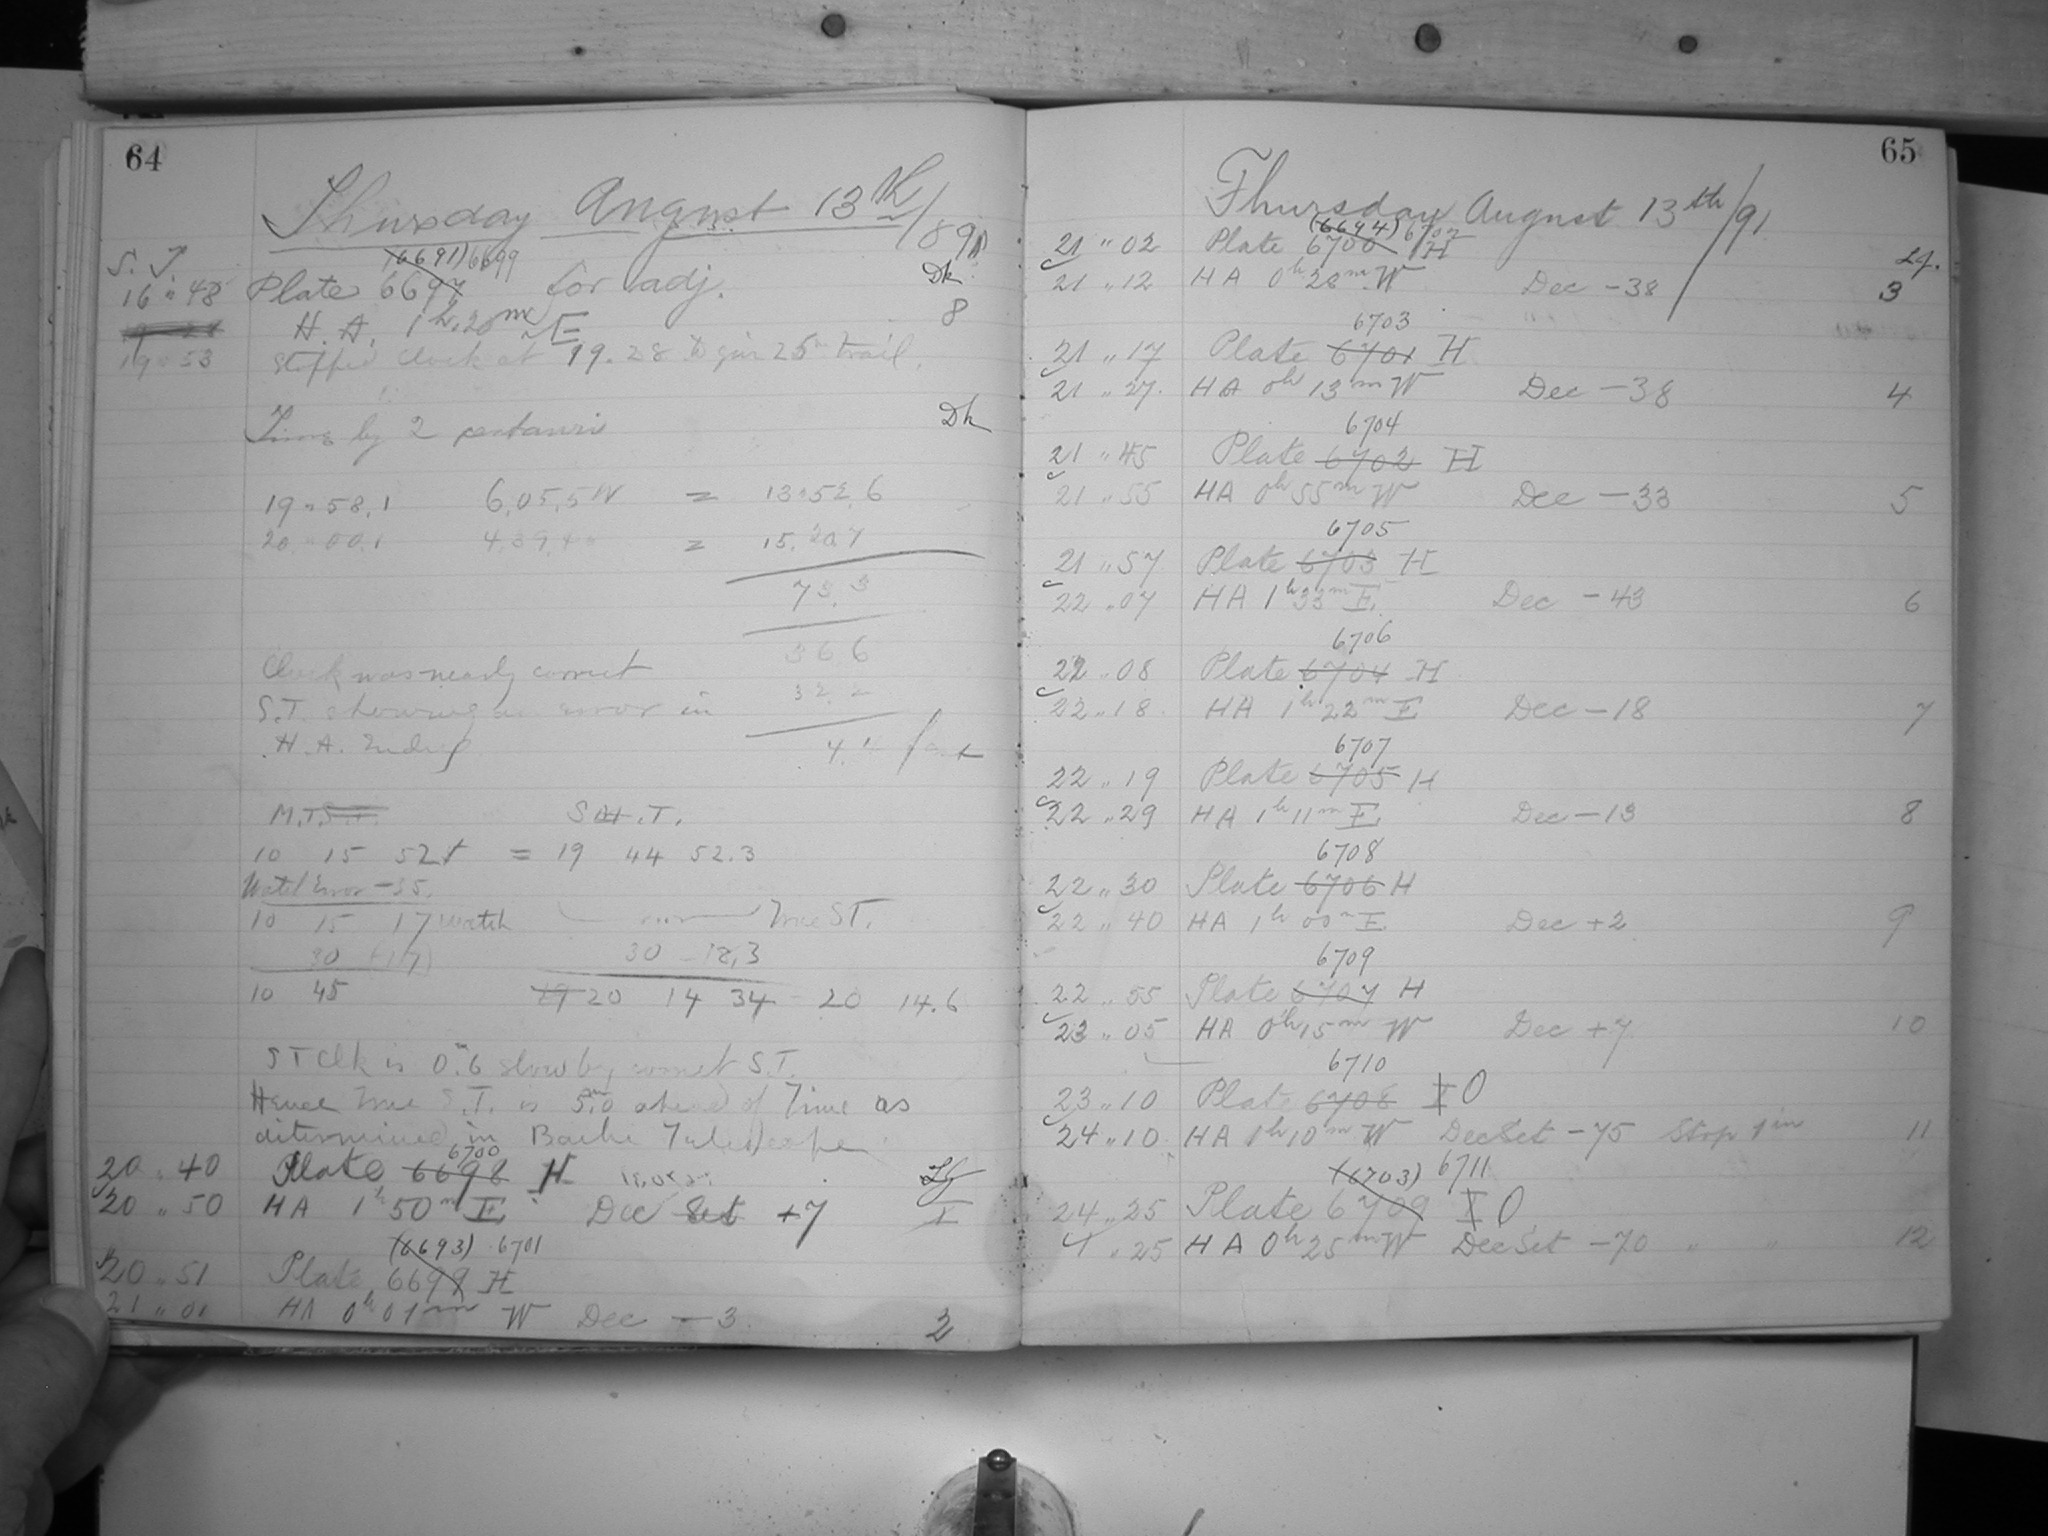 64
Thursday August 13th/891
S. T. (6691) 6699
16 " 48 Plate 6697 for adj. Dk
19 28 H. A. 1h.20m E 8
19 " 53 Stopped Clock at 19.28 to give 25m trail.
Time by 2 centauri Dk
19 " 58.1 6.05.5 W = 13 " 52.6
20 " 00.1 4.39.4 = 15.20.7
73.3
36 6
Clock was nearly correct 32 2
S.T. showing an error in
H.A. Index 4.4 fast
M.T. S.T. S.M.T.
10 15 52 = 19 44 52.3
Watch Error -35.
10 15 17 watch True S.T.
30 (17) 30 - 18,3
10 45 19 20 14 34 - 20 14.6
S T Clk is 0m.6 slow by correct S.T.
Hence True S.T. is 5m.0 ahead of Time as
determined in Bache Telescope
6700
20 " 40 Plate 6698 H
20 " 50 HA 1h 50m E Dec Set +7 1
(6693) 6701
20 " 51 Plate 6699 H
21 " 01 HA 0h 01m W Dec -3 2
65
Thursday August 13th/91
(6694) 6702
21 " 02 Plate 6700 H
21 " 12 HA 0h 28m W Dec -38 3
6703
21 " 17 Plate 6701 H
21 " 27 HA 0h 13m W Dec -38 4
6704
21 " 45 Plate 6702 H
21 " 55 HA 0h 55m W Dec -33 5
6705
21 " 57 Plate 6703 H
22 " 07 HA 1h 33m E. Dec -43 6
6706
22 " 08 Plate 6704 H
22 " 18 HA 1h 22m E Dec -18 7
6707
22 " 19 Plate 6705 H
22 " 29 HA 1h 11m E. Dec -13 8
6708
22 " 30 Plate 6706 H
22 " 40 HA 1h 00m E Dec +2 9
6709
22 " 55 Plate 6707 H
23 " 05 HA 0h 15m W Dec +7 10
6710
23 " 10 Plate 6708 X O
24 " 10 HA 1h 10m W Dec Set -75 Stop 1 in 11
(6703) 6711
24 " 25 Plate 6709 X O
1 " 25 HA 0h 25m W Dec Set -70 " " 12